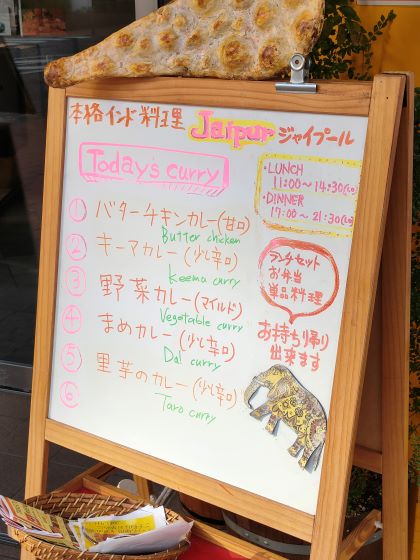 本格インド料理 Jaipur ジャイプール
Today's curry
・LUNCH
11:00～14:30(L.O)
・DINNER
17:00～21:30(L.O)
① バターチキンカレー(甘口)
Butter chicken
② キーマカレー(少し辛口)
Keema curry
③ 野菜カレー(マイルド)
Vegetable curry
④ まめカレー(少し辛口)
Dal curry
⑤ 里芋のカレー(少し辛口)
Taro curry
⑥
ランチセット
お弁当
単品料理
お持ち帰り
出来ます